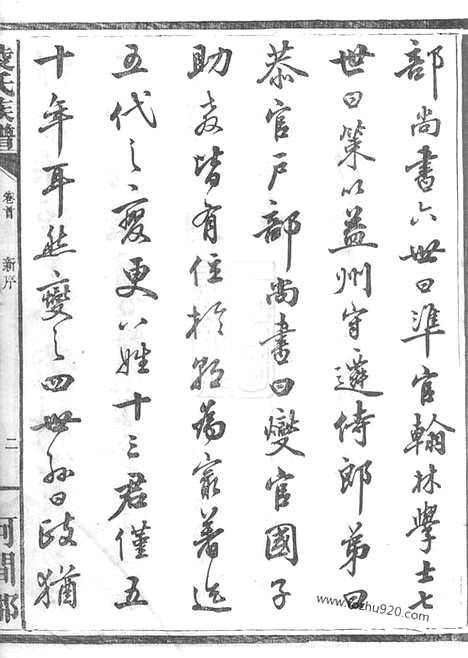 部尚書六世曰準官翰林學士七
世曰策以益州守遷侍郎弟曰
恭官戶部尚書曰燮官國子
助教皆有位於朝為最著迄
五代之變更八姓十三君僅五
十年耳然燮之四世孫曰猶
凌氏族譜
卷首 新序
二
河間郡
www.tczhu920.com